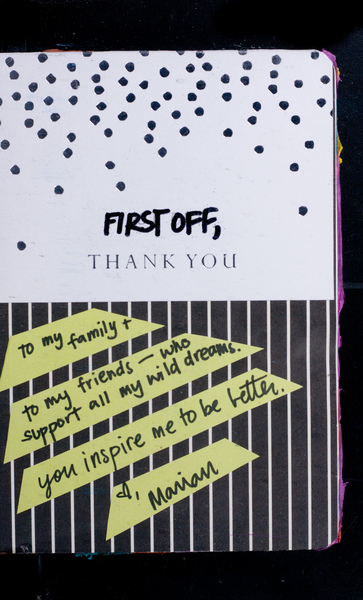 FIRST OFF,
THANK YOU
to my family +
to my friends — who
support all my wild dreams.
you inspire me to be better.
Marian